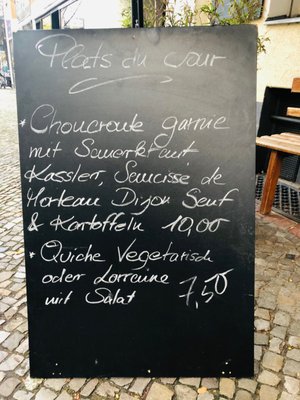 Plats du jour
* Choucroute garnie
mit Sauerkraut
Kassler, Saucisse de
Morteau Dijon Senf
& Kartoffeln 10,00
* Quiche Vegetarisch
oder Lorraine
mit Salat 7,50